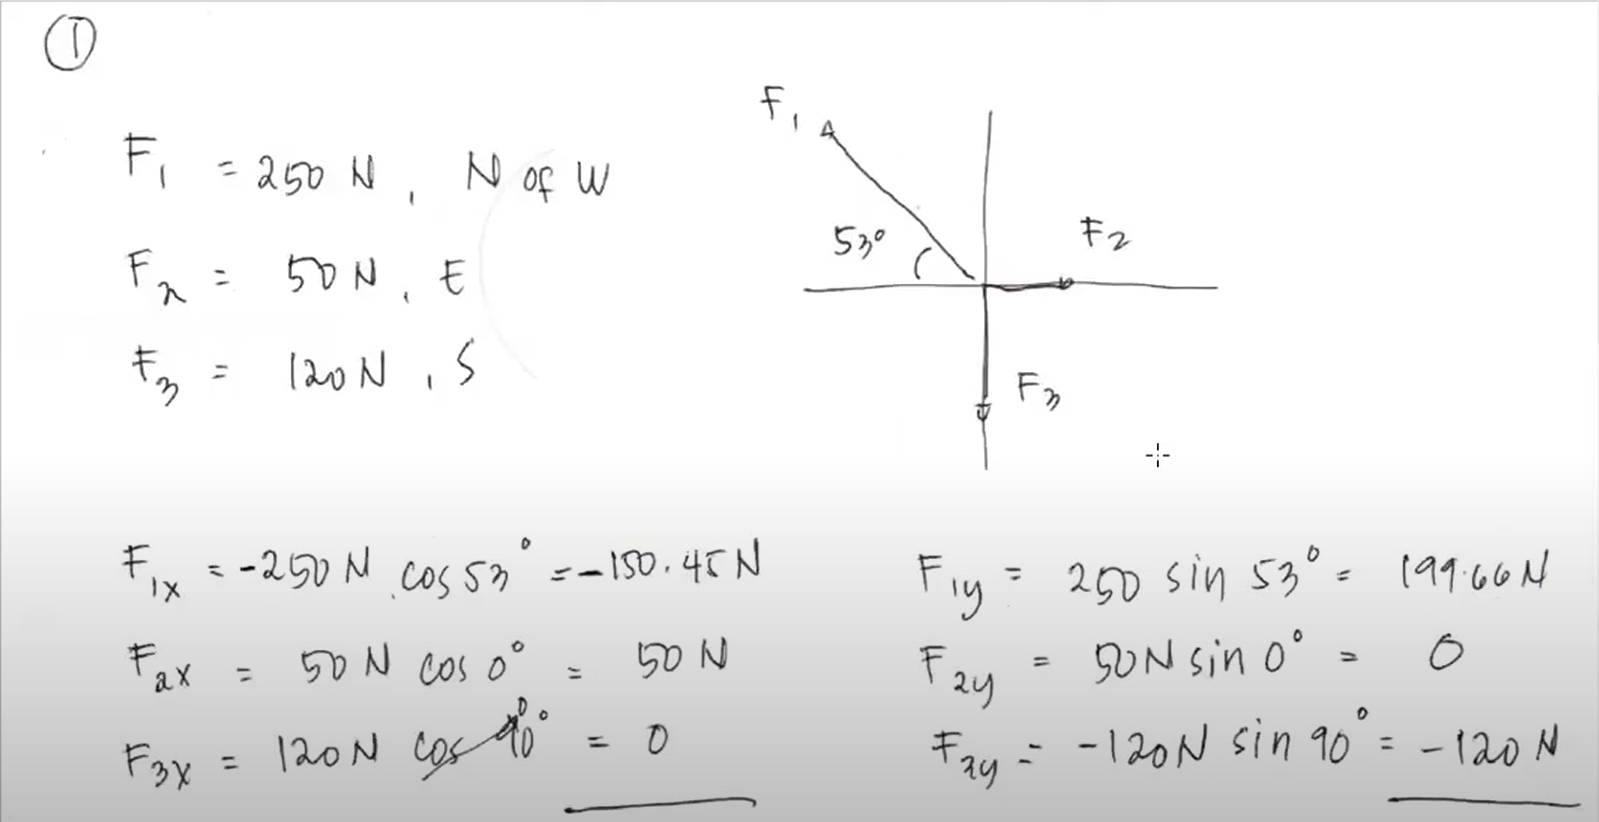 ①
F₁ = 250 N, N of W
F₂ = 50 N, E
F₃ = 120 N, S
F₁
53°
F₂
F₃
F₁ₓ = -250 N cos 53° = -150.45 N
F₂ₓ = 50 N cos 0° = 50 N
F₃ₓ = 120 N cos 90° = 0
F₁y = 250 sin 53° = 199.66 N
F₂y = 50 N sin 0° = 0
F₃y = -120 N sin 90° = -120 N